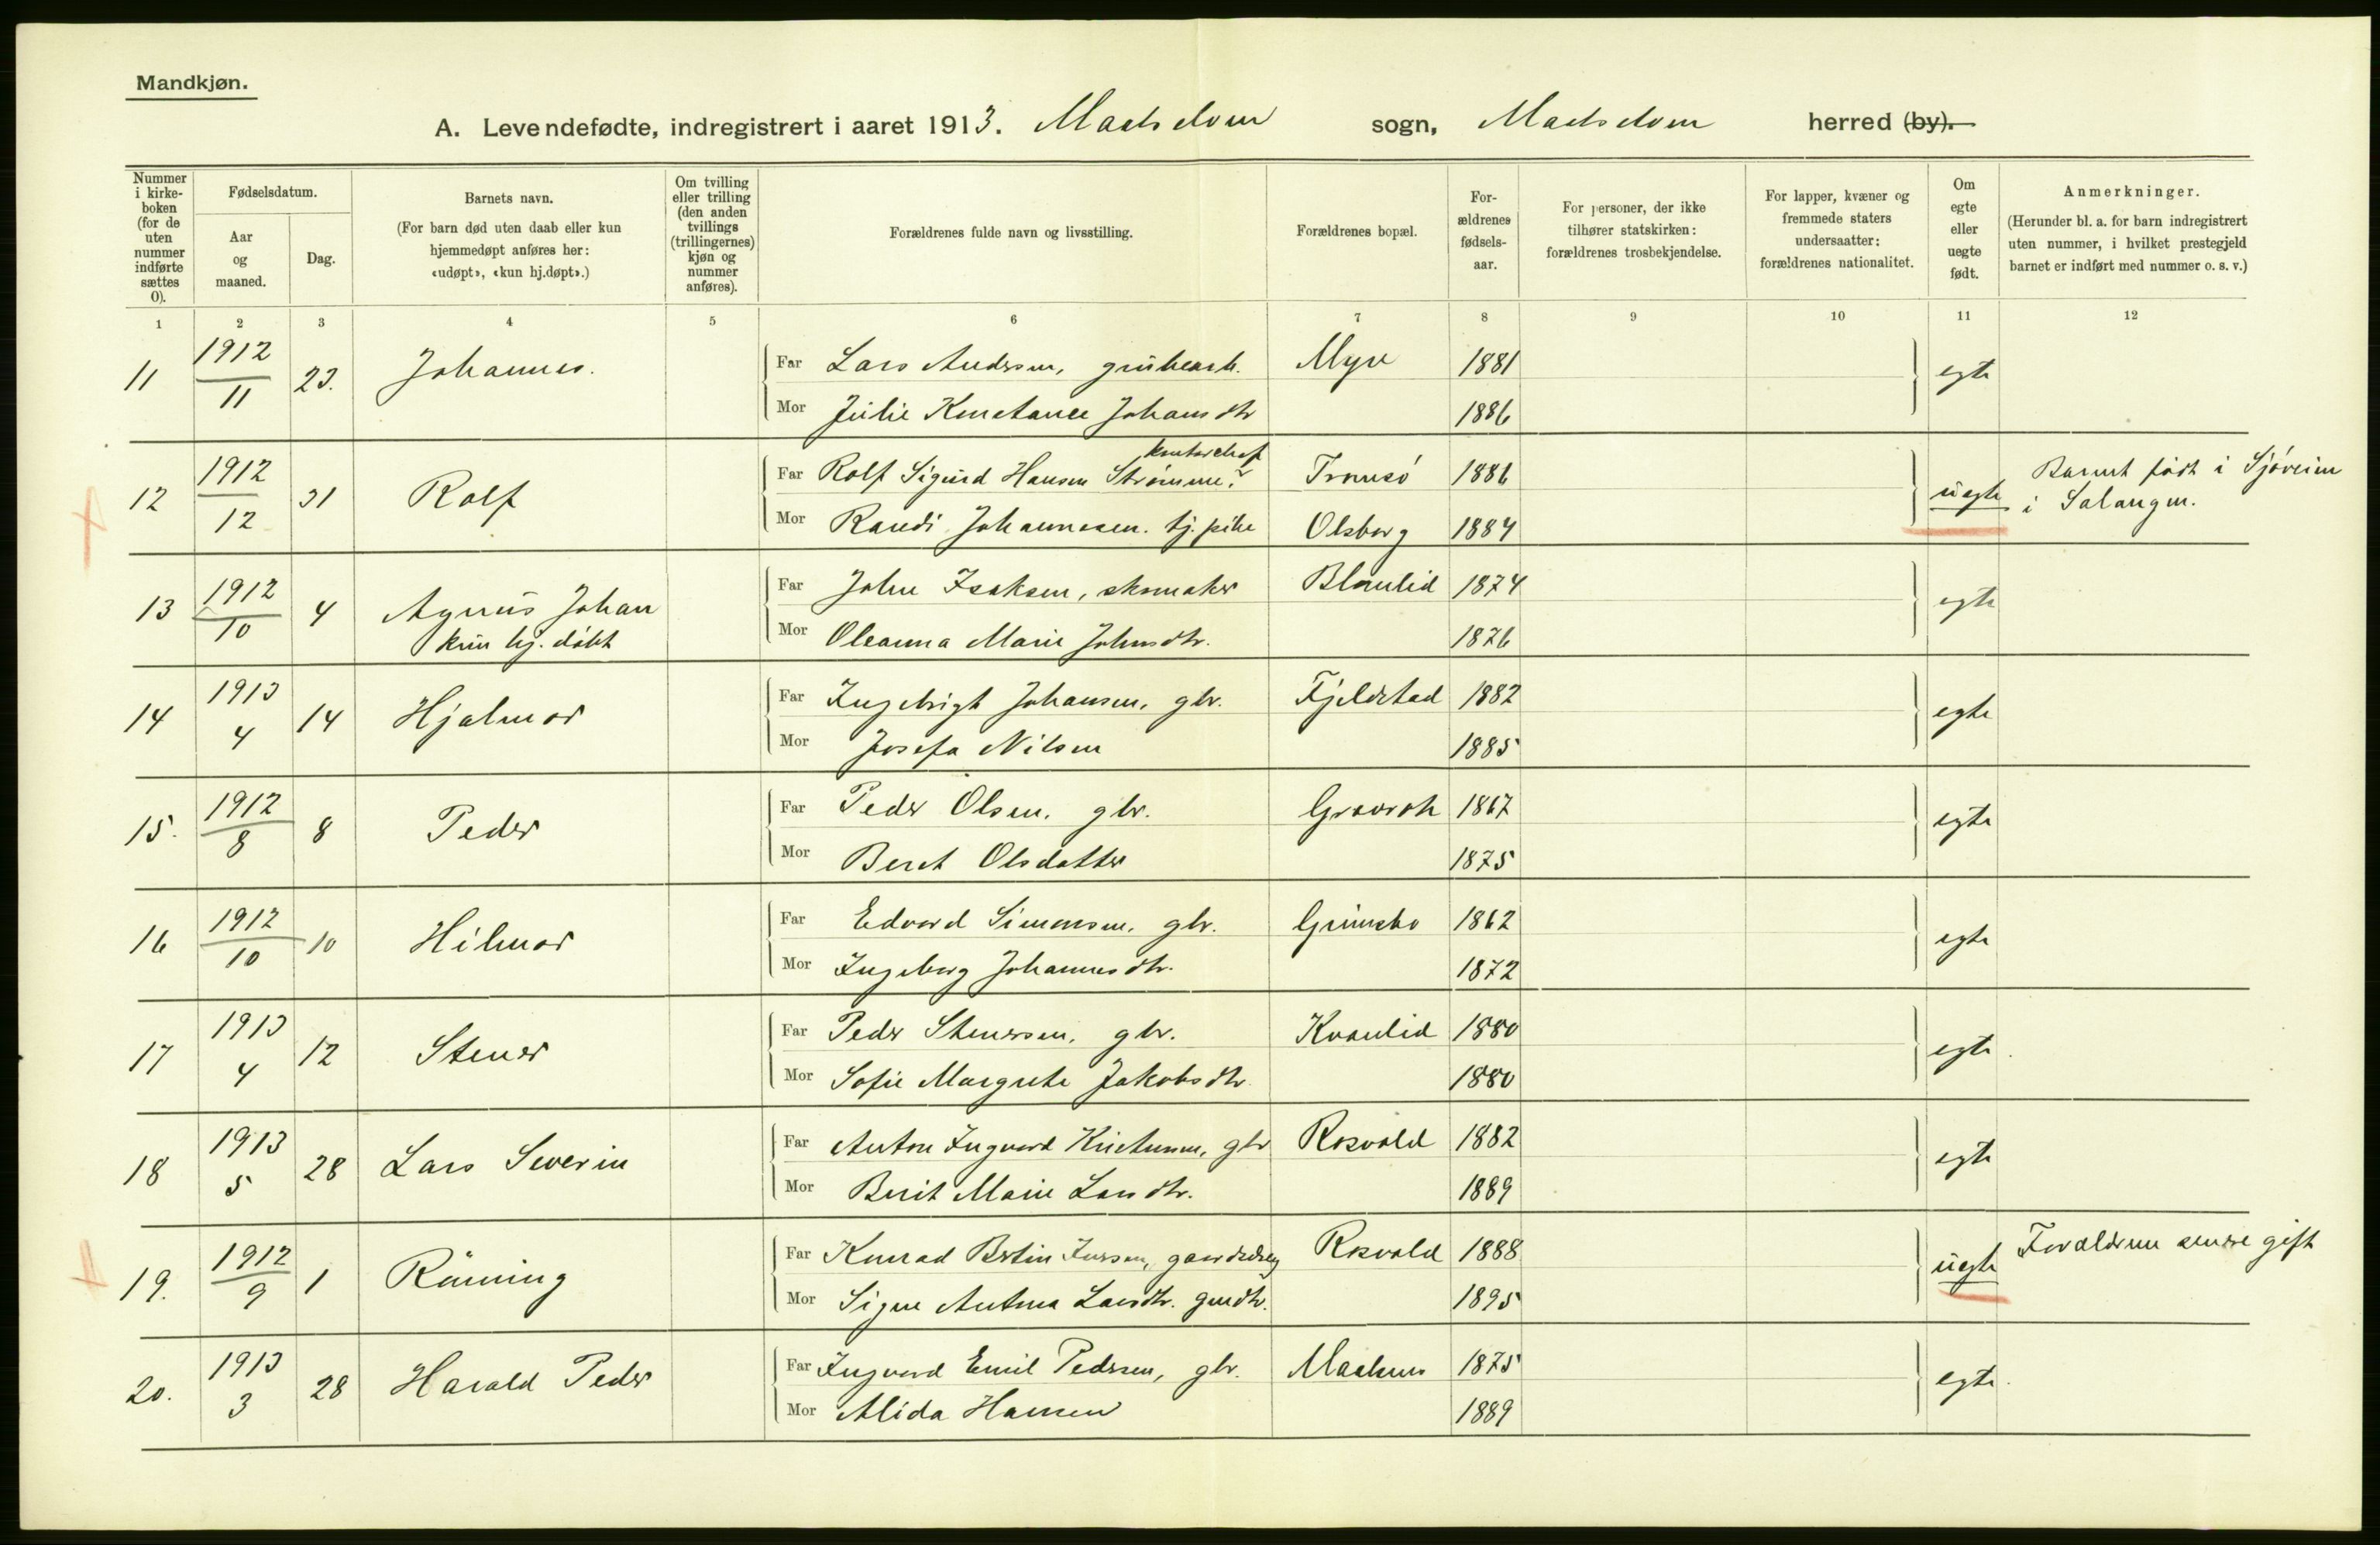 Mandkjøn.
A. Levendefødte, indregistrert i aaret 1913. Maalselven sogn, Maalselven herred (by).
Nummer i kirkeboken (for de uten nummer indførte sættes 0).
Fødselsdatum.
Aar og maaned.
Dag.
Barnets navn.
(For barn død uten daab eller kun hjemmedøpt anføres her: «udøpt», «kun hj.døpt».)
Om tvilling eller trilling (den anden tvillings (trillingernes) kjøn og nummer anføres).
Forældrenes fulde navn og livsstilling.
Forældrenes bopæl.
For-ældrenes fødsels-aar.
For personer, der ikke tilhører statskirken: forældrenes trosbekjendelse.
For lapper, kvæner og fremmede staters undersaatter: forældrenes nationalitet.
Om egte eller uegte født.
Anmerkninger.
(Herunder bl. a. for barn indregistrert uten nummer, i hvilket prestegjeld barnet er indført med nummer o. s. v.)
1 2 3 4 5 6 7 8 9 10 11 12
11 1912 11 23. Johannes. Far Lars Andersen, grubearb. Myre 1881 egte
Mor Julie Konstance Johansdtr 1886
12 1912 12 31 Rolf Far Rolf Sigurd Hansen Strømme? kontorchef Tromsö 1886 uegte Barnet födt i Sjöveien
Mor Randi Johannesen. tj.pike Olsborg 1884 i Salangen.
13 1912 10 4 Agnus Johan Far John Isaksen, skomaker 1874 egte
kun hj. döbt Mor Oleanna Marie Johnsdtr. 1876
14 1913 4 14 Hjalmar Far Ingebrigt Johansen, gbr. Fjeldstad 1882 egte
Mor Josefa Nilsen 1885
15. 1912 8 8 Peder Far Peder Olsen. gbr. 1867 egte
Mor Beret Olsdatter 1875
16 1912 10 10 Hilmar Far Edvard Simonsen. gbr. 1862 egte
Mor Ingeborg Johannesdtr. 1872
17 1913 4 12 Stener Far Peder Stenersen. gbr. Kvanlid 1880 egte.
Mor Sofie Margrete Jakobsdtr. 1880
18 1913 5 28 Lars Severin Far Anton Ingvard Kristensen, gbr Rosvold 1882 egte
Mor Berit Marie Larsdtr. 1889
19. 1912 9 1 Rönning Far Konrad Bertin Rosvold 1888 uegte Forældrene senere gift
Mor Signe Antona Larsdtr. 1895
20. 1913 3 28 Harald Peder Far Ingvard Emil Pedersen, gbr. 1875 egte.
Mor Alida Hansen 1889